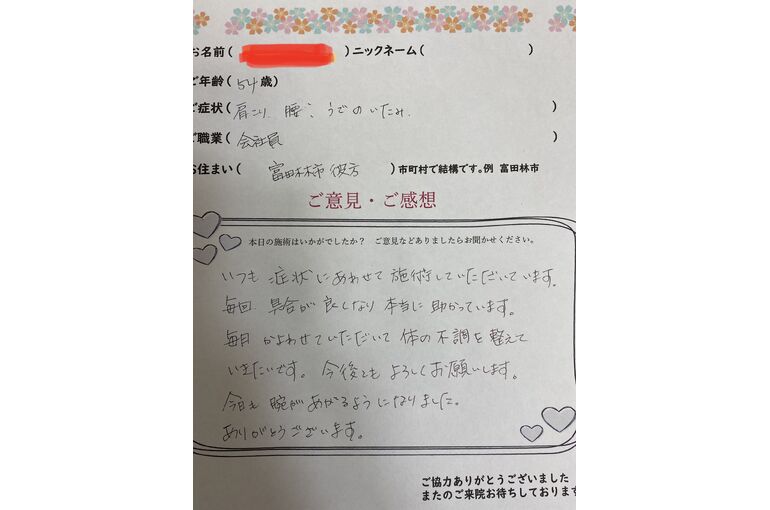 お名前( )ニックネーム( )
ご年齢( 54 歳)
ご症状( 肩こり、腰、うでのいたみ. )
ご職業( 会社員 )
お住まい( 富田林市 彼方 )市町村で結構です。例 富田林市
ご意見・ご感想
本日の施術はいかがでしたか? ご意見などありましたらお聞かせください。
いつも 症状にあわせて 施術していただいています。
毎回 具合が 良くなり 本当に 助かっています。
毎月 かよわせていただいて 体の 不調を 整えて
いきたいです。 今後とも よろしくお願いします。
今日も 腕が あがるようになりました。
ありがとうございます。
ご協力ありがとうございました
またのご来院お待ちしております